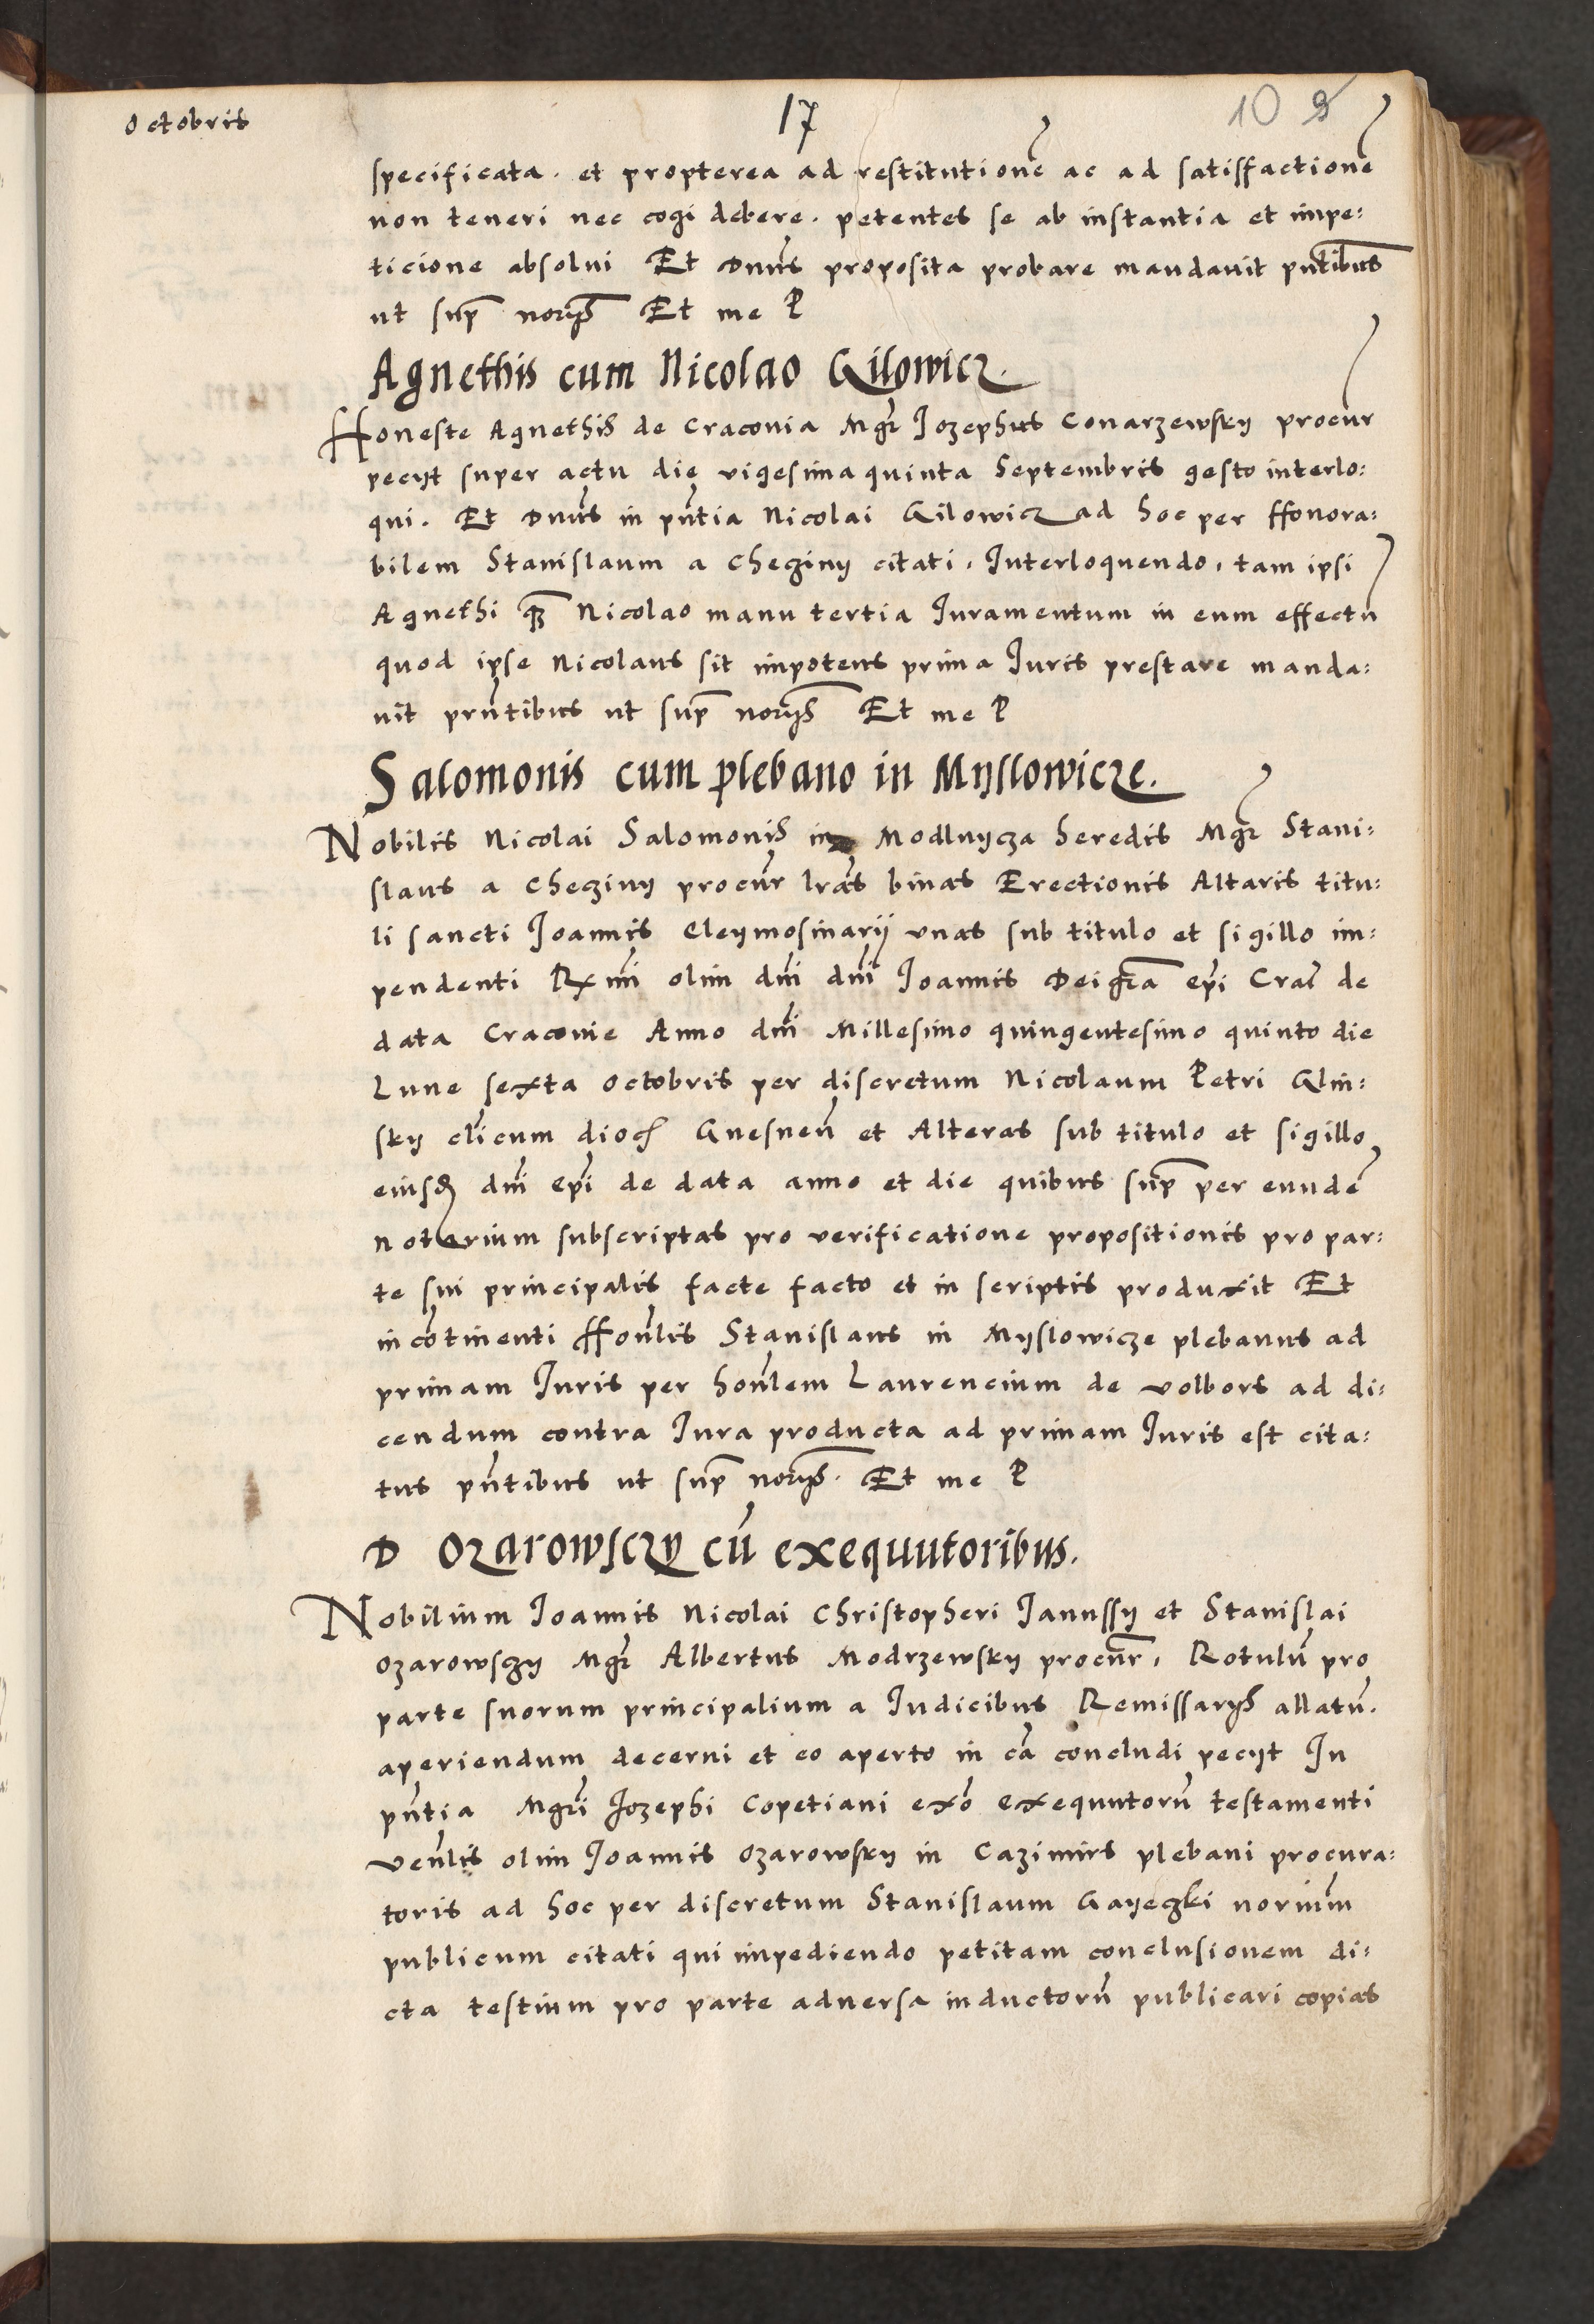 Octobris
17
10 9
specificata. et propterea ad restitutionē ac ad satisfactionē
non teneri nec cogi debere. petentes se ab instantia et impe:
ticione absolui Et Dnūs proposita probare mandauit pn̄tibus
ut sup̄ norijs̄ Et me P
Agnethis cum Nicolao Gilowicz.
Honeste Agnethis de Craconia Mgr̄ Jozephus Conarzewsky procūr
pecijt super actu die vigesima quinta Septembris gesto interlo:
qui. Et Dnūs in pn̄tia Nicolai Gilowicz ad hoc per Honora:
bilem Stanislaum a Checziny citati. Interloquendo, tam ipsi
Agnethi q̄ Nicolao manu tertia Juramentum in eum effectū
quod ipse Nicolaus sit impotens prima Juris prestare manda:
uit prn̄tibus ut sup̄ norijs̄ Et me P
Salomonis cum plebano in Myslowicze.
Nobilis Nicolai Salomonis in Modlnycza heredis Mgr̄ Stani:
slaus a Checziny procūr lrās binas Erectionis Altaris titu:
li sancti Joannis Eleymosinarij vnas sub titulo et sigillo im:
pendenti Rxmi olim dn̄i dn̄i Joannis Dei grā ep̄i Crac̄ de
data Craconie Anno dn̄i Millesimo quingentesimo quinto die
Lune sexta Octobris per discretum Nicolaum Petri Glin:
sky cl̄icum dioc̄ Gnesnen̄ et Alteras sub titulo et sigillo
eiusd̄ dn̄i ep̄i de data anno et die quibus sup̄ per eundē
notarium subscriptas pro verificatione propositionis pro par:
te sui principalis facte facto et in scriptis produxit Et
in cōtinenti Hon̄lis Stanislaus in Myslowicze plebanus ad
primam Juris per hon̄lem Laurencium de Volbors ad di:
cendum contra Jura producta ad primam Juris est cita:
tus pn̄tibus ut sup̄ norijs̄. Et me P
D Ozarowsczy cū exequutoribus.
Nobilium Joannis Nicolai Christopheri Janussy et Stanislai
Ozarowsczy Mgr̄ Albertus Modrzewsky procūr, Rotulū pro
parte suorum principalium a Judicibus Remissarijs allatū.
aperiendum decerni et eo aperto in cā concludi pecijt In
pn̄tia Mgrī Jozephi Copetiani exō exequutorū testamenti
ven̄lis olim Joannis Ozarowsky in Cazimirs plebani procura:
toris ad hoc per discretum Stanislaum Gayeczki norium̄
publicum citati qui impediendo petitam conclusionem di:
cta testium pro parte aduersa inductorū publicari copias